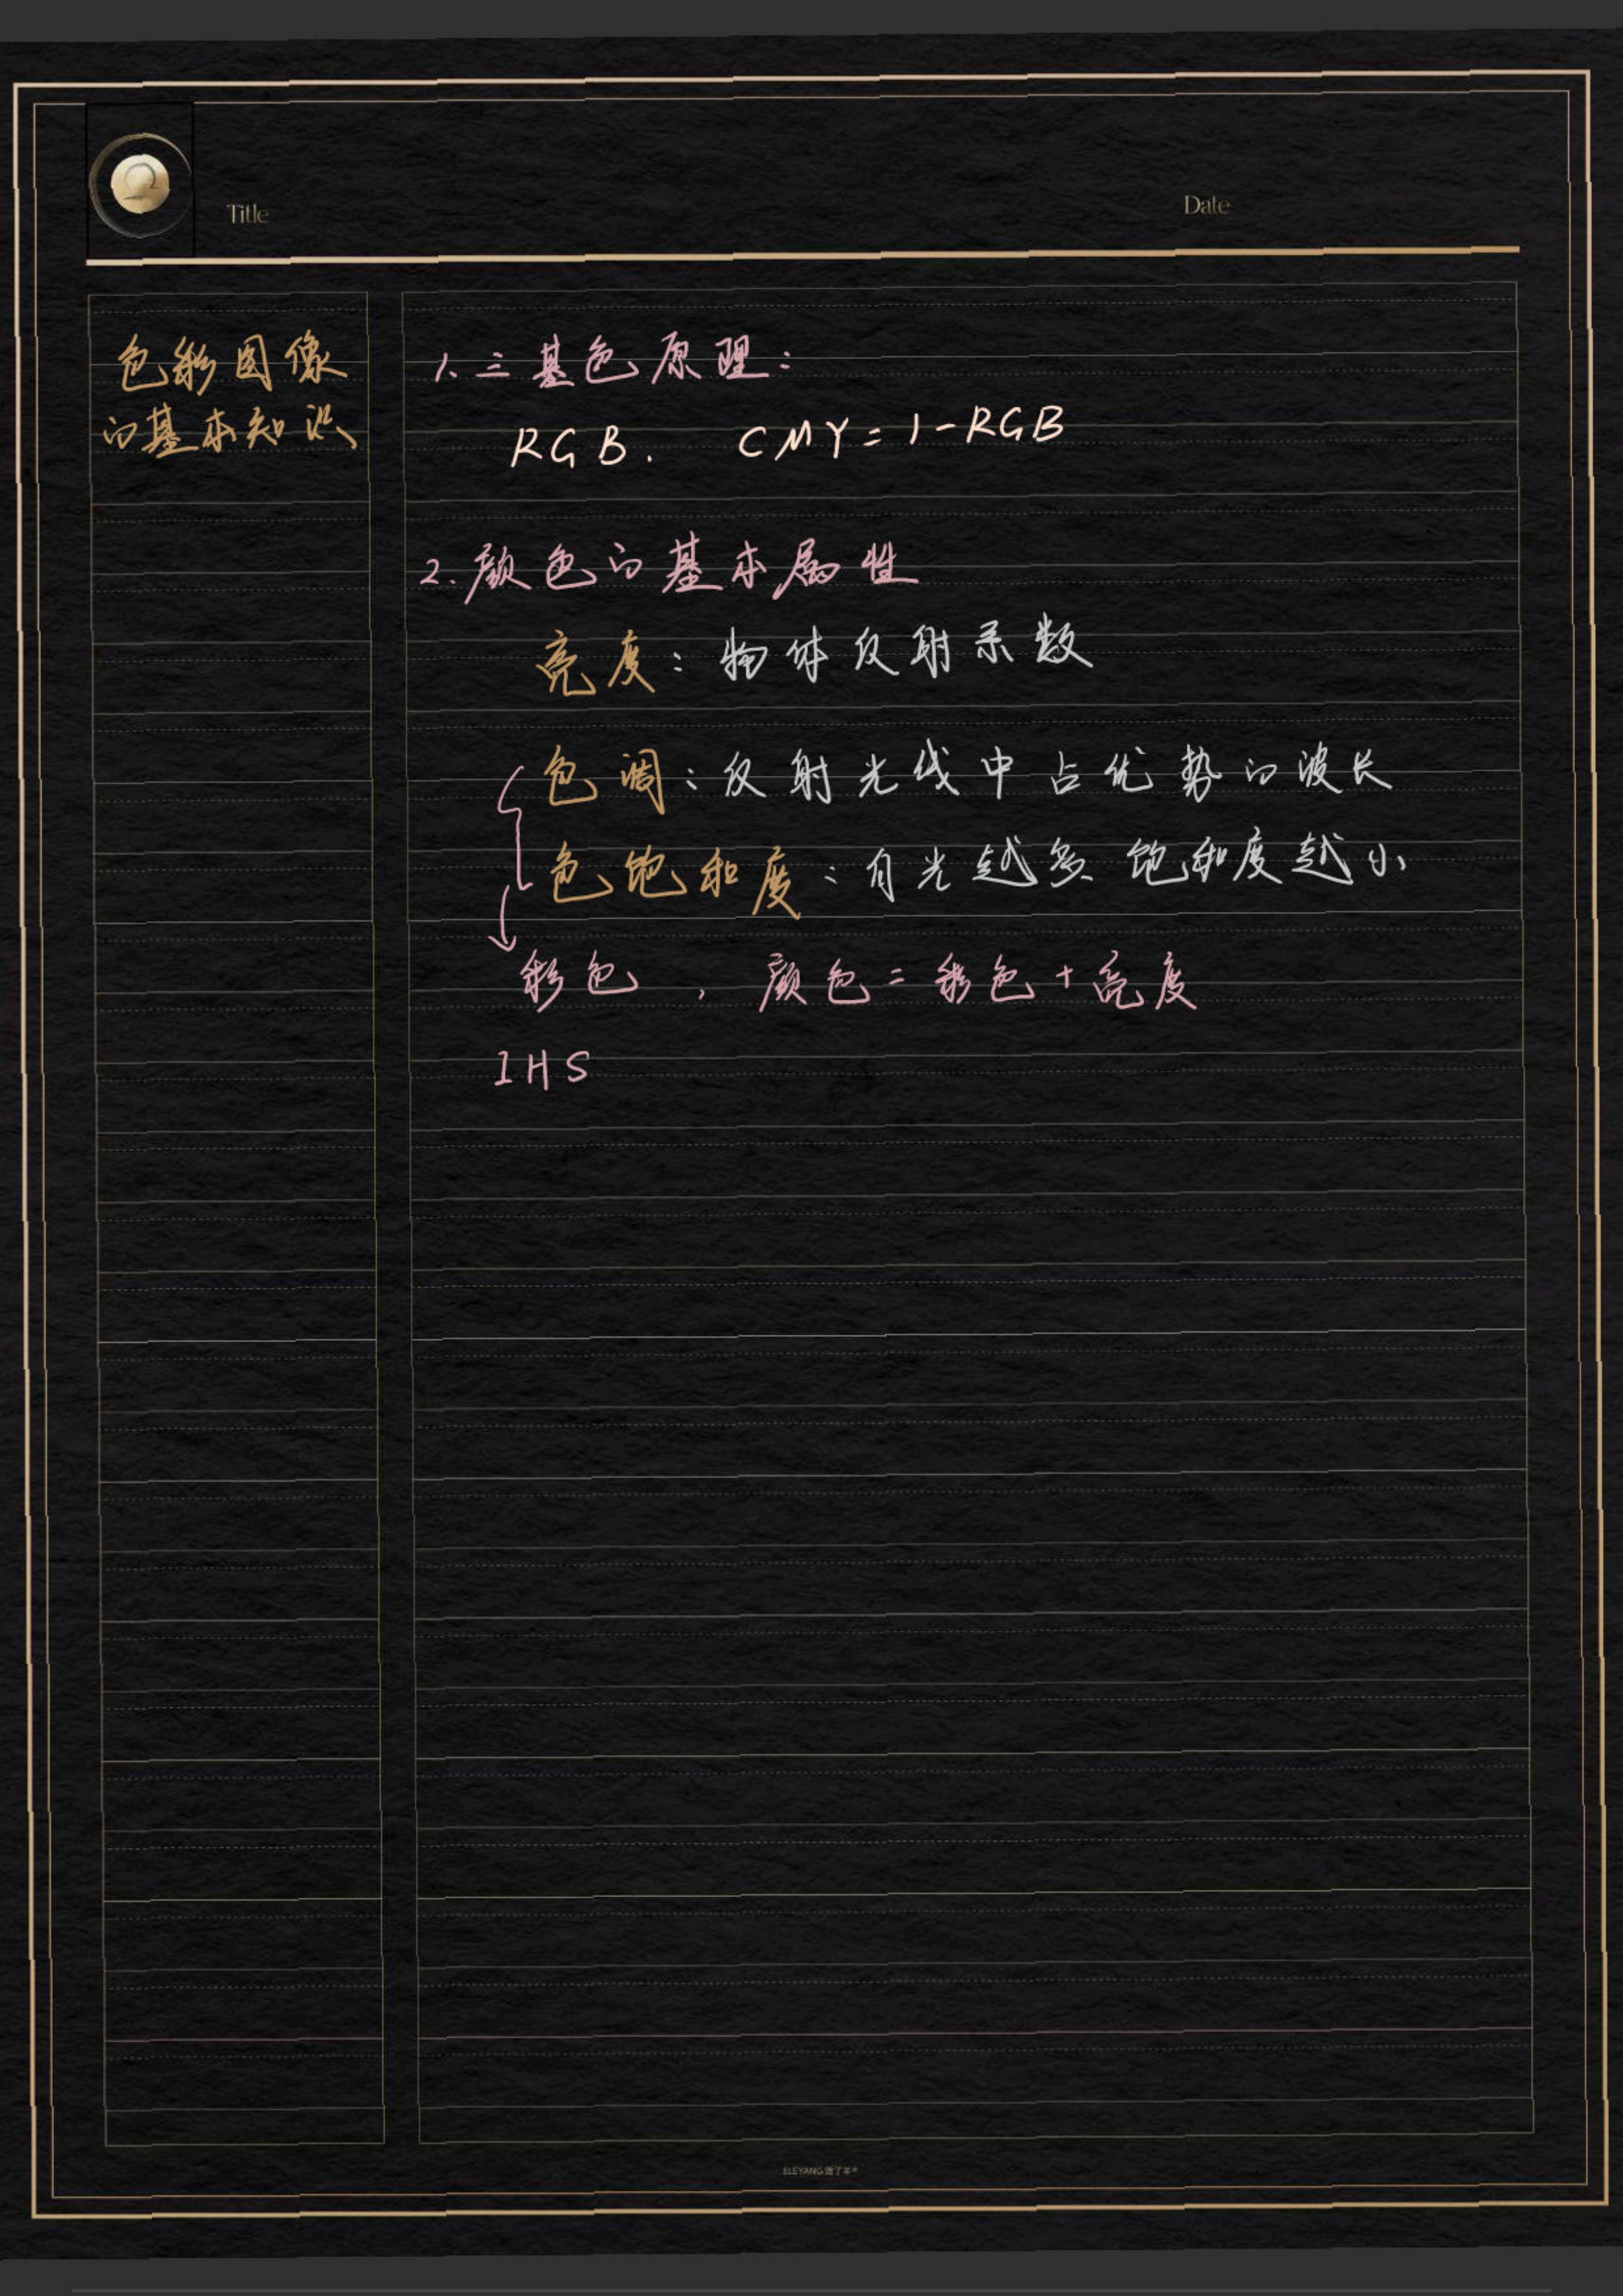 Title
Date
色彩图像
的基本知识
1、三基色原理:
RGB. CMY=1-RGB
2.颜色的基本属性
亮度:物体反射系数
色调:反射光线中占优势的波长
色饱和度:白光越多 饱和度越小
彩色,颜色=彩色+亮度
IHS
ELEYANG饿了羊®